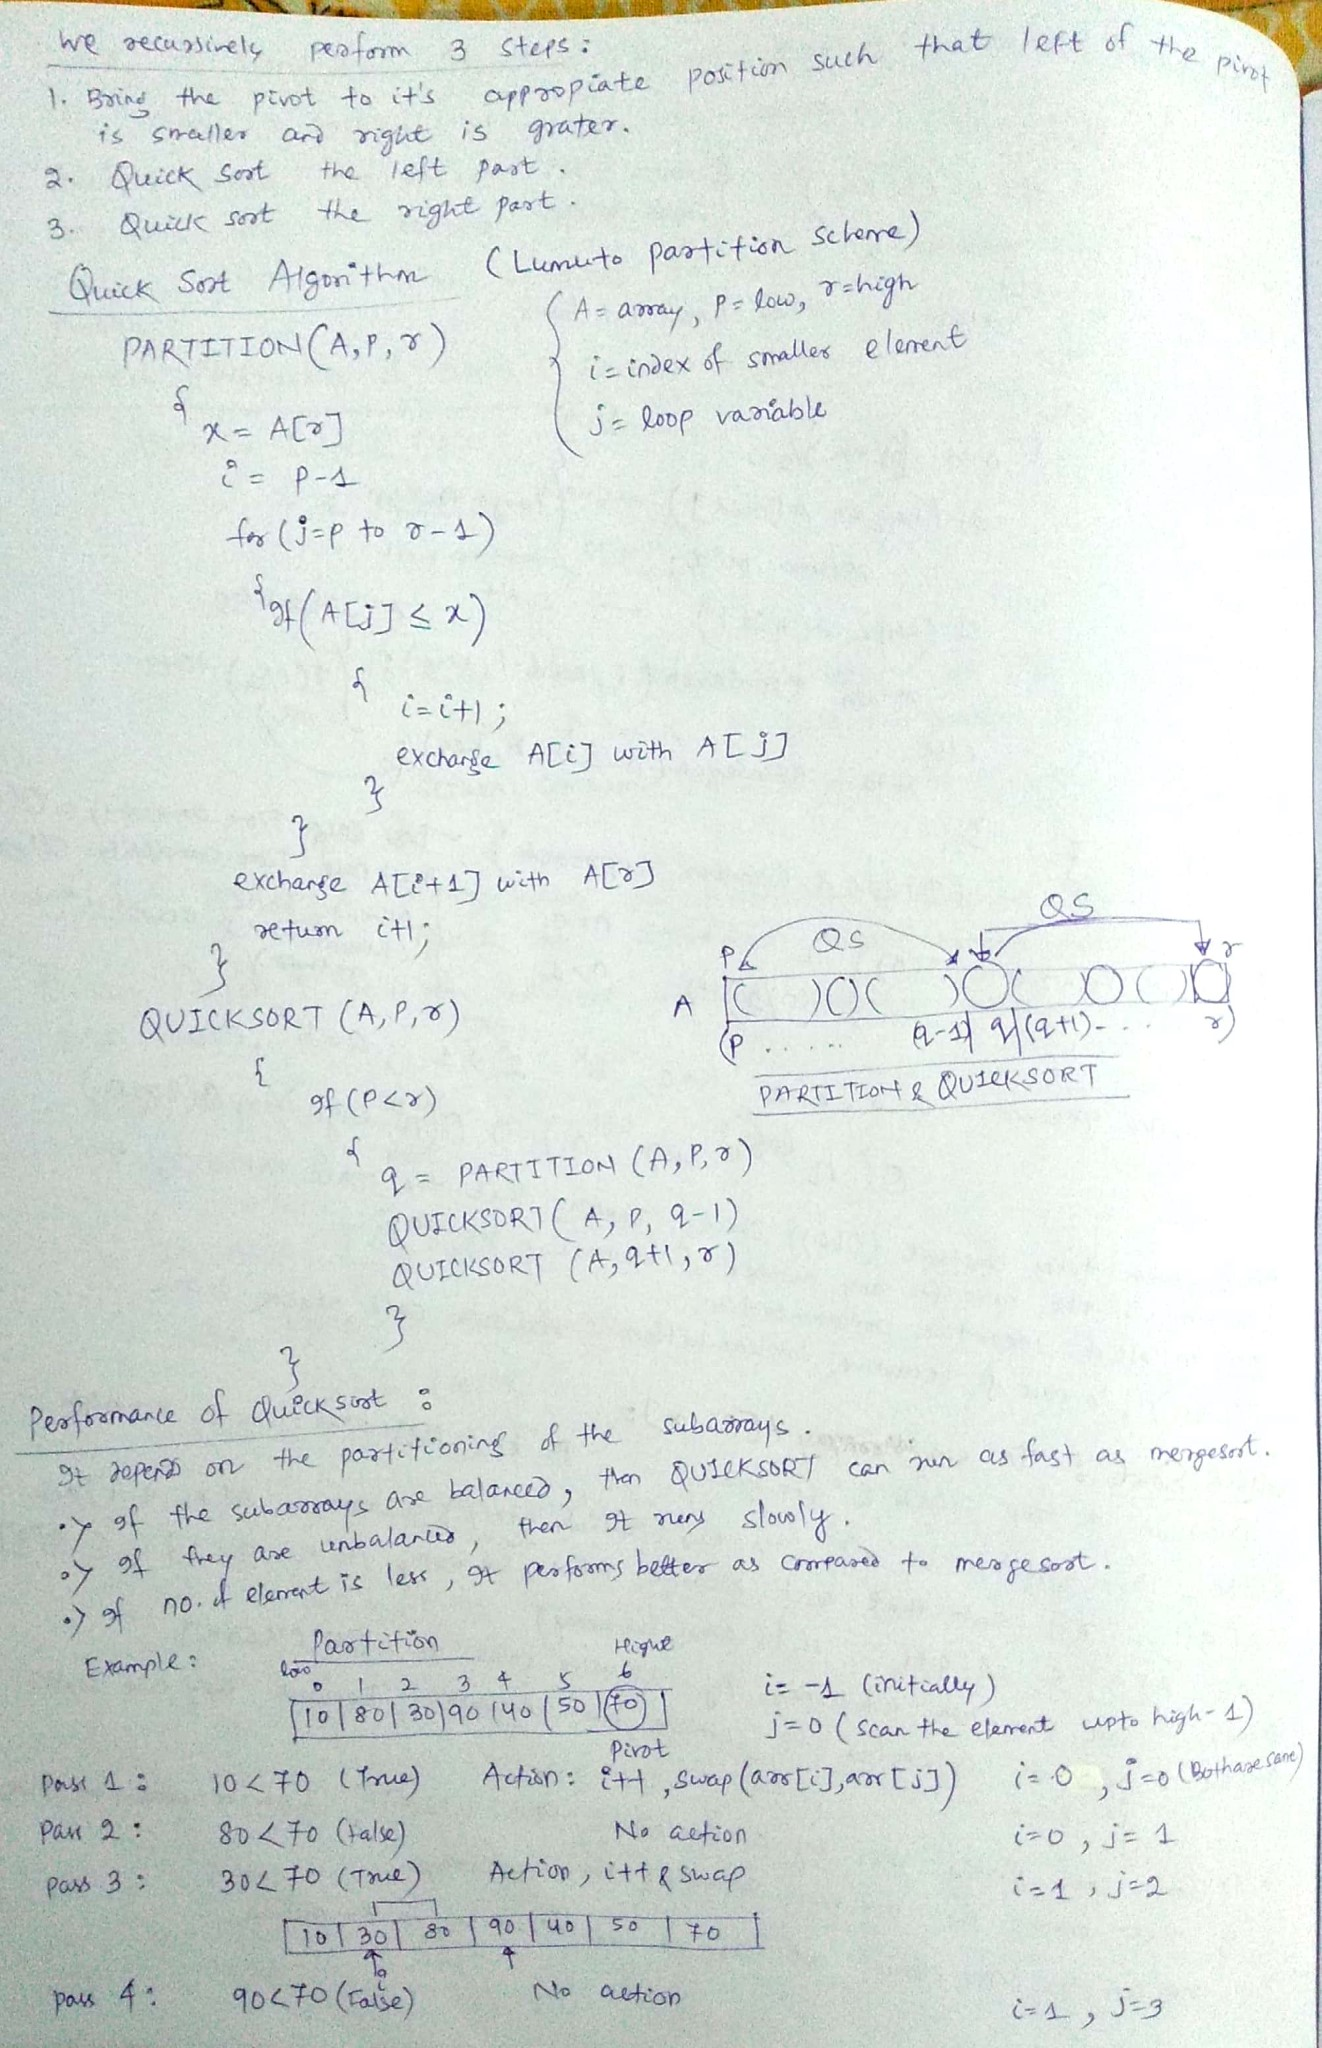 We recursively perform 3 steps:
1. Bring the pivot to it's appropiate position such that left of the pivot
is smaller and right is grater.
2. Quick Sort the left part.
3. Quick sort the right part.
Quick Sort Algorithm (Lumuto partition scheme)
PARTITION(A,P,r)
{ A= array, P= low, r=high
i= index of smaller element
j= loop variable
{
x= A[r]
i= P-1
for (j=P to r-1)
{ If (A[j] ≤ x)
{
i=i+1;
exchange A[i] with A[j]
}
}
exchange A[i+1] with A[r]
return i+1;
}
QS QS
P r
A [( )O( )O( )O( )O]
(P ...... (q-1) q (q+1)- . . . r)
PARTITION & QUICKSORT
QUICKSORT (A,P,r)
{
If (P<r)
{
q = PARTITION (A,P,r)
QUICKSORT (A, P, q-1)
QUICKSORT (A,q+1,r)
}
}
Performance of Quicksort :
It depends on the partitioning of the subarrays.
•> If the subarrays are balanced, then QUICKSORT can run as fast as mergesort.
•> If they are unbalanced, then It runs slowly.
•> If no. of element is less, It performs better as compared to mergesort.
Example: Partition
low Hight
0 1 2 3 4 5 6
[10|80|30|90|40|50|70]
Pivot
i= -1 (initially)
j=0 (scan the element upto high-1)
Pass 1: 10<70 (True) Action: i++, swap(arr[i],arr[j]) i=0, j=0 (Both are same)
Pass 2: 80<70 (False) No action i=0, j=1
Pass 3: 30<70 (True) Action, i++ & swap i=1, j=2
[10|30|80|90|40|50|70]
i
pass 4: 90<70 (False) No action i=1, j=3